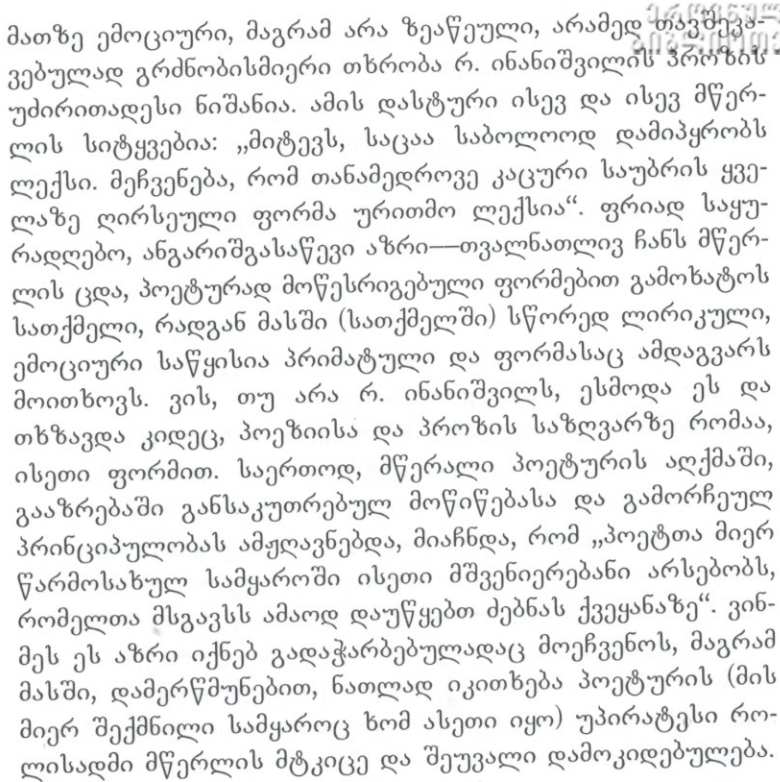 მათზე ემოციური, მაგრამ არა ზეაწეული, არამედ თავშეკა-
ვებულად გრძნობისმიერი თხრობა რ. ინანიშვილის პროზის
უძირითადესი ნიშანია. ამის დასტური ისევ და ისევ მწერ-
ლის სიტყვებია: „მიტევს, საცაა საბოლოოდ დამიპყრობს
ლექსი. მეჩვენება, რომ თანამედროვე კაცური საუბრის ყვე-
ლაზე ღირსეული ფორმა ურითმო ლექსია“. ფრიად საყუ-
რადღებო, ანგარიშგასაწევი აზრი—თვალნათლივ ჩანს მწერ-
ლის ცდა, პოეტურად მოწესრიგებული ფორმებით გამოხატოს
სათქმელი, რადგან მასში (სათქმელში) სწორედ ლირიკული,
ემოციური საწყისია პრიმატული და ფორმასაც ამდაგვარს
მოითხოვს. ვის, თუ არა რ. ინანიშვილს, ესმოდა ეს და
თხზავდა კიდეც, პოეზიისა და პროზის საზღვარზე რომაა,
ისეთი ფორმით. საერთოდ, მწერალი პოეტურის აღქმაში,
გააზრებაში განსაკუთრებულ მოწიწებასა და გამორჩეულ
პრინციპულობას ამჟღავნებდა, მიაჩნდა, რომ „პოეტთა მიერ
წარმოსახულ სამყაროში ისეთი მშვენიერებანი არსებობს,
რომელთა მსგავსს ამაოდ დაუწყებთ ძებნას ქვეყანაზე“. ვინ-
მეს ეს აზრი იქნებ გადაჭარბებულადაც მოეჩვენოს, მაგრამ
მასში, დამერწმუნებით, ნათლად იკითხება პოეტურის (მის
მიერ შექმნილი სამყაროც ხომ ასეთი იყო) უპირატესი რო-
ლისადმი მწერლის მტკიცე და შეუვალი დამოკიდებულება.